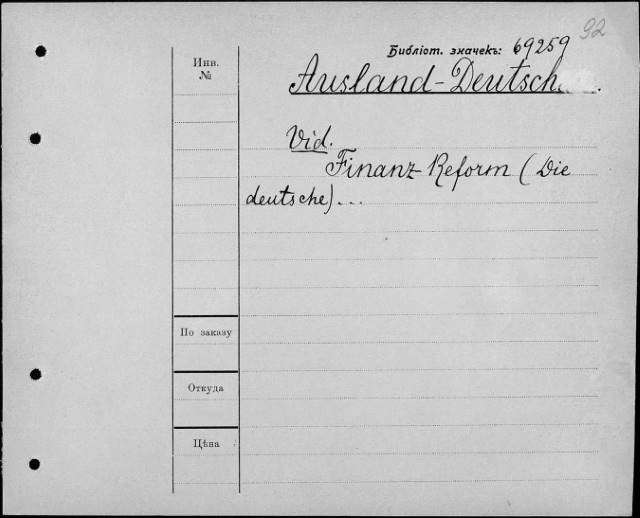 92
Библіот. значекъ: 69259
Инв.
№
Ausland-Deutsch
Vid.
Finanz-Reform (Die
deutsche)...
По заказу
Откуда
Цѣна